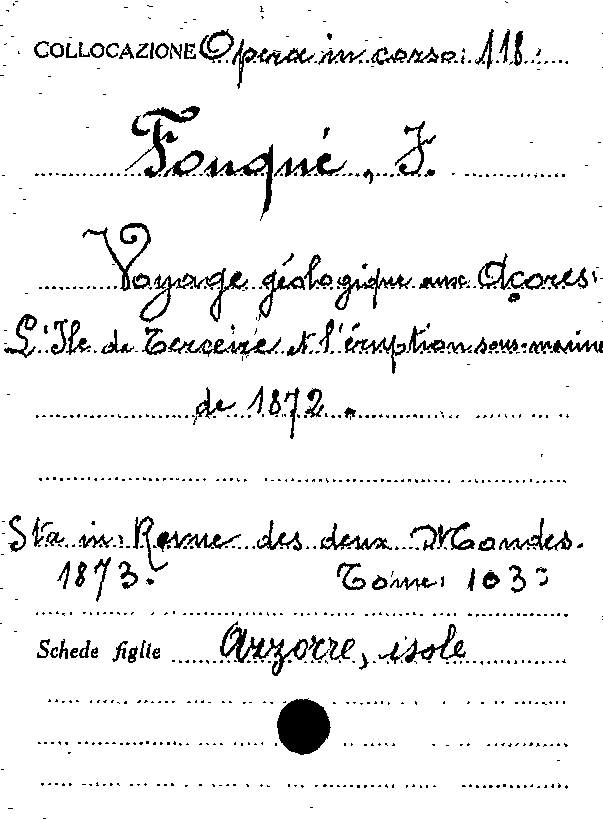 COLLOCAZIONE Opera in corso: 118.
Fouqué, F.
Voyage géologique aux Açores:
L'Ile de Terceire et l'éruption sous-marine
de 1872.
Sta in: Revue des deux Mondes.
1873. Tome: 103º
Schede figlie Azzorre, isole